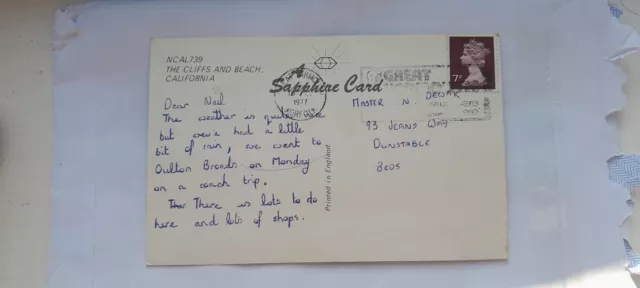 NCAL739
THE CLIFFS AND BEACH,
CALIFORNIA
Sapphire Card
1977
GREAT
7P
Dear Neil
The weather is
but weve had a little
bit of rain, we went to
Oulton Broads on Monday
on a coach trip.
Thar There is lots to do
here and lots of shops.
Printed in England
MASTER N. DEWAR
93 JEANS WAY
DUNSTABLE
BEDS